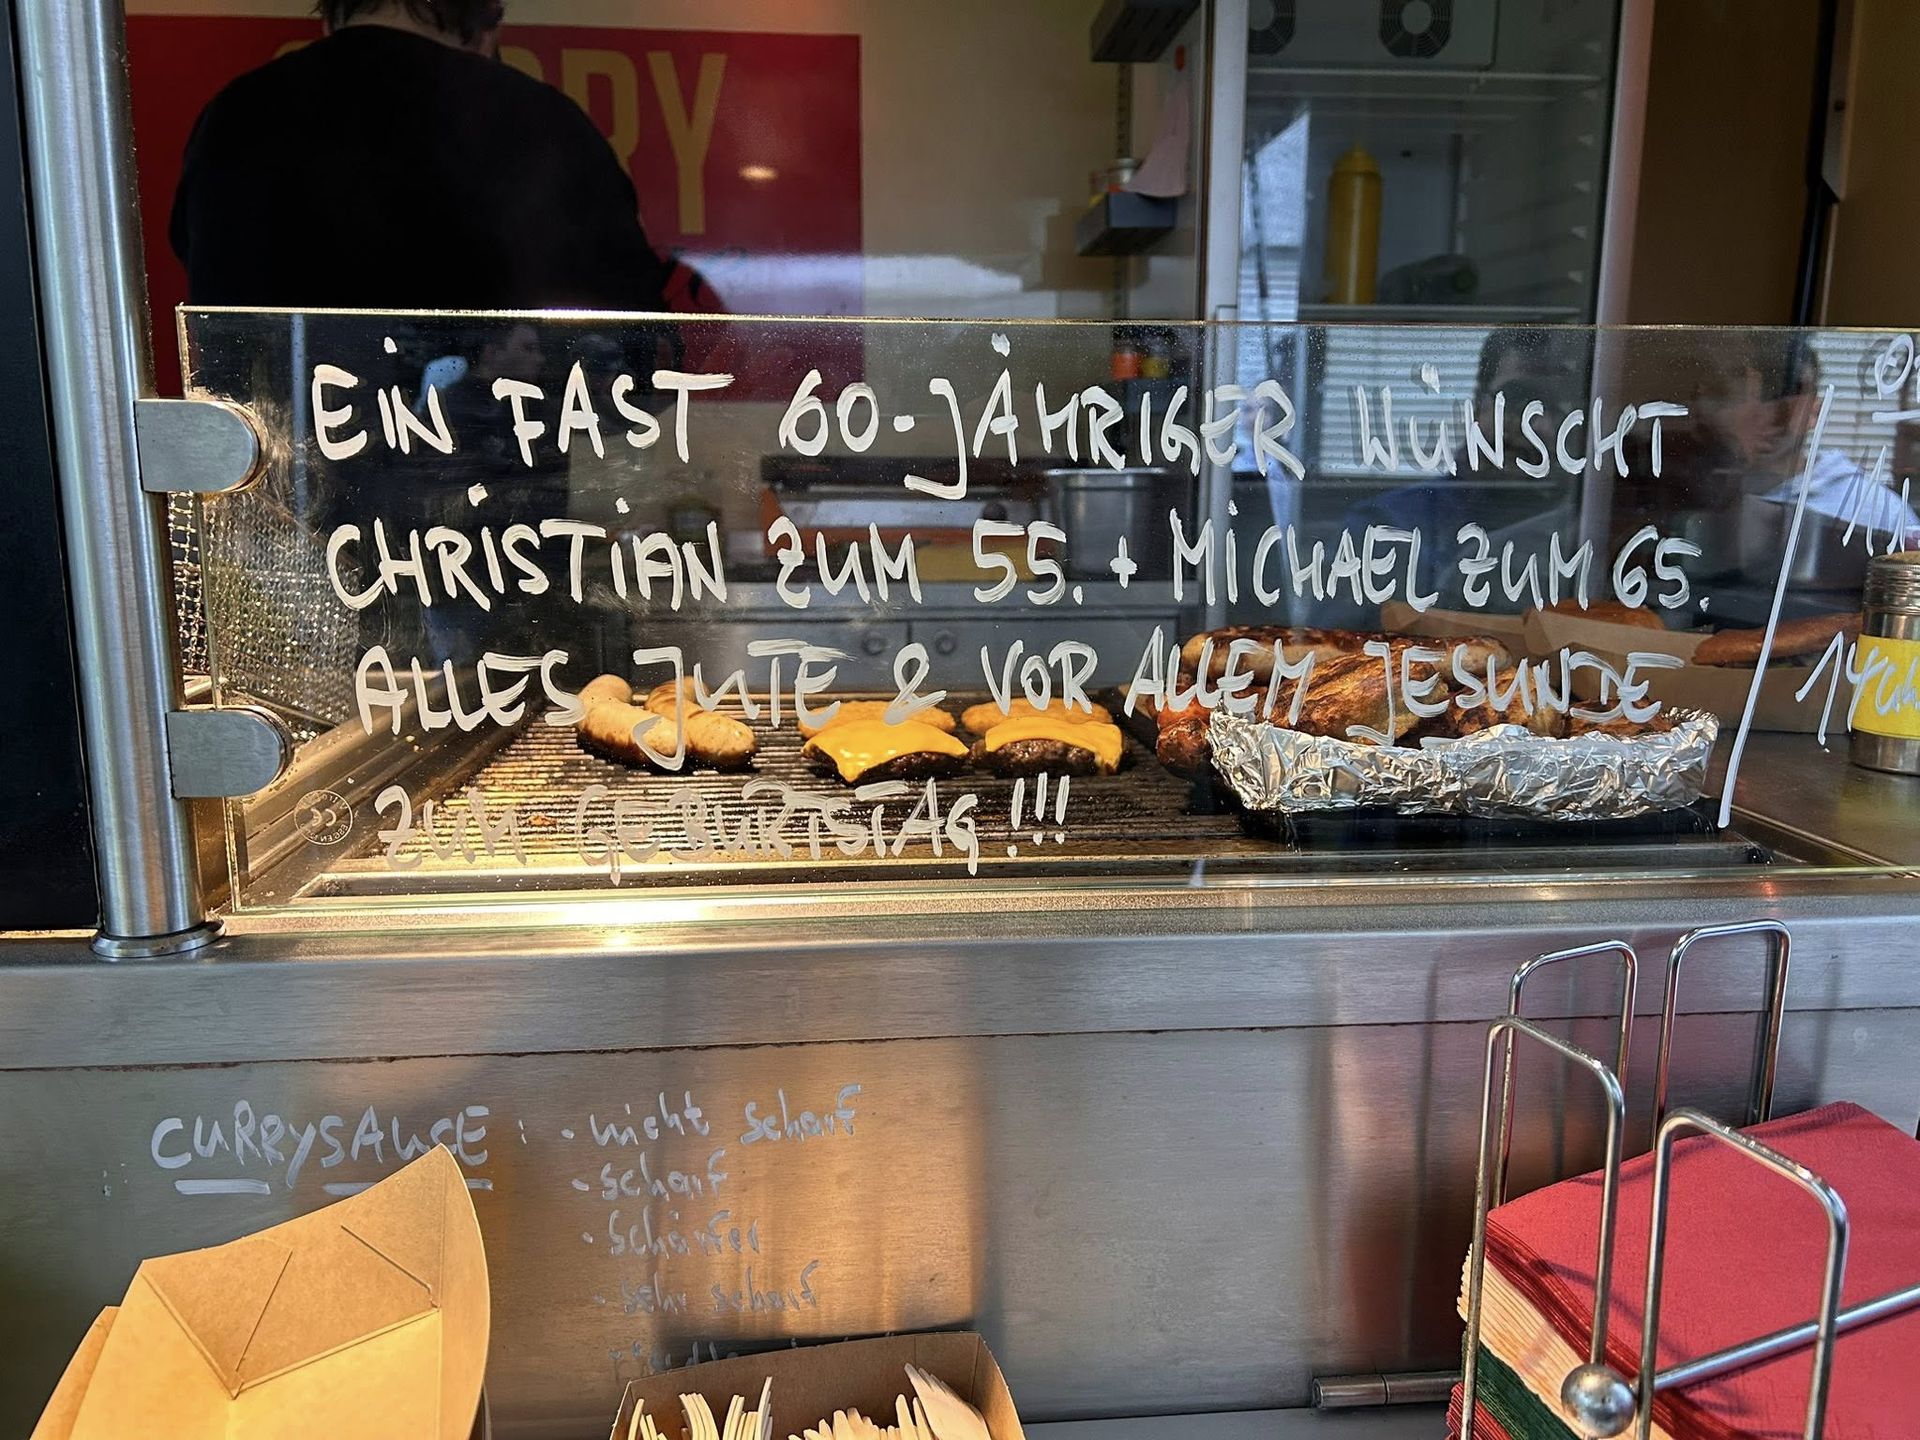 EIN FAST 60-JÄHRIGER WÜNSCHT
CHRISTIAN ZUM 55. + MICHAEL ZUM 65.
ALLES JUTE & VOR ALLEM JESUNDE
ZUM GEBURTSTAG !!!
CURRYSAUCE : - nicht scharf
- scharf
- schärfer
- sehr scharf